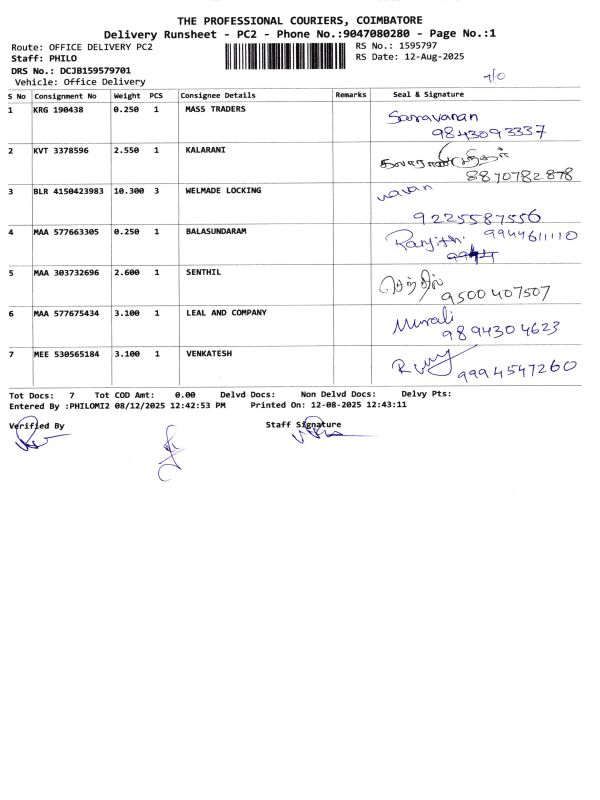 THE PROFESSIONAL COURIERS, COIMBATORE
Delivery Runsheet - PC2 - Phone No.:9047080280 - Page No.:1
Route: OFFICE DELIVERY PC2 RS No.: 1595797
Staff: PHILO RS Date: 12-Aug-2025
DRS No.: DCJB159579701
Vehicle: Office Delivery 7/0
S No Consignment No Weight PCS Consignee Details Remarks Seal & Signature
1 KRG 190438 0.250 1 MASS TRADERS Saravanan
9843093337
2 KVT 3378596 2.550 1 KALARANI
8870782878
3 BLR 4150423983 10.300 3 WELMADE LOCKING
9225587556
4 MAA 577663305 0.250 1 BALASUNDARAM Ranjith 9944611110
5 MAA 303732696 2.600 1 SENTHIL செந்தில்
9500407507
6 MAA 577675434 3.100 1 LEAL AND COMPANY Murali
9894304623
7 MEE 530565184 3.100 1 VENKATESH
9994547260
Tot Docs: 7 Tot COD Amt: 0.00 Delvd Docs: Non Delvd Docs: Delvy Pts:
Entered By :PHILOMI2 08/12/2025 12:42:53 PM Printed On: 12-08-2025 12:43:11
Verified By Staff Signature